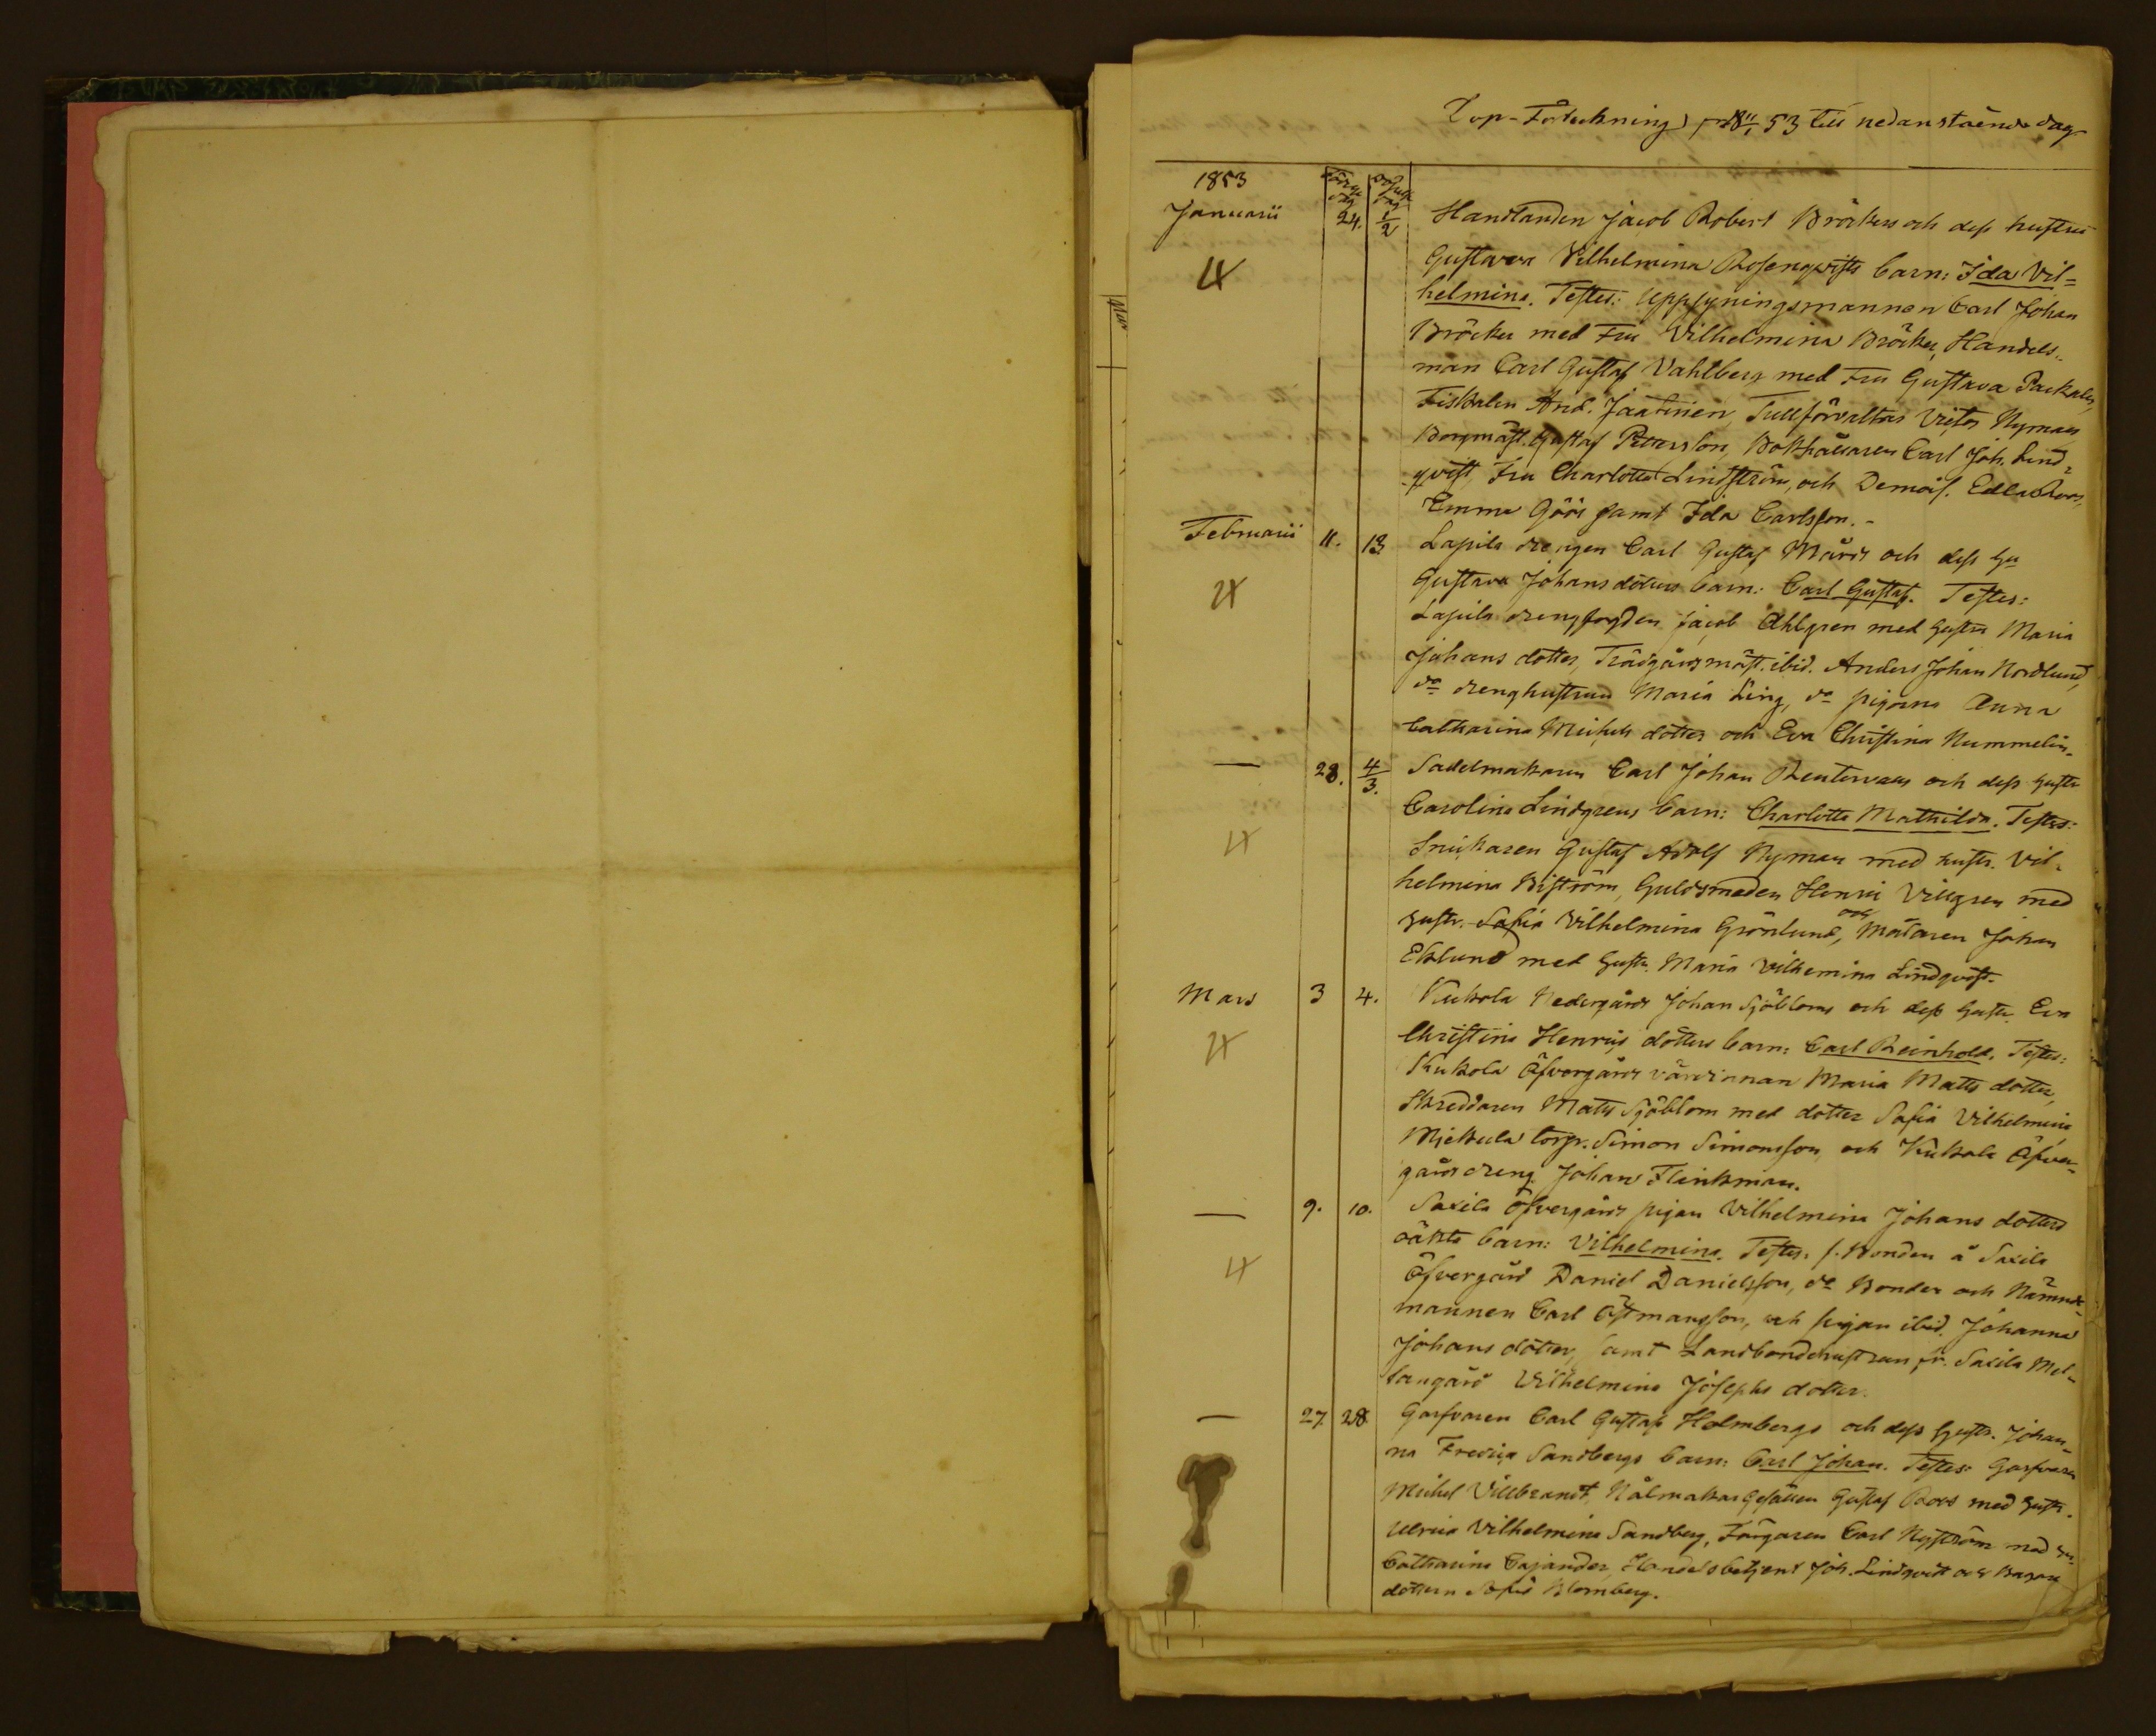 Dop-Förteckning 18 11/1 53 till nedanstående dag
1853
Födelse dag Döpelse dag
Januarii 24. 1/2 Handlanden Jacob Robert Bröckers och dess hustru
Gustava Vilhelmina Rosenqvists barn: Ida Vil=
helmina. Testes: Uppsyningsmannen Carl Johan
Bröcker med Fru Vilhelmina Bröcker, Handels-
man Carl Gustaf Vahlberg med Fru Gustava Packalen,
Fiskalen And. Jaatinen, Tullförvaltar Victor Nyman
Borgmäst. Gustaf Petersson, Bokhållaren Carl Joh. Lind-
qvist, Fru Charlotta Lindström, och Demois. Edla Roos,
Emma Göös samt Ida Carlsson.-
Februarii 11. 13 Lapila drengen Carl Gustaf Mårds och dess hu
Gustava Johansdotters barn: Carl Gustaf. Testes:
Lapila drengfogden Jacob Ahlgren med hustru Maria
Johans dotter, Trädgårdsmäst. ibid. Anders Johan Nordlund,
do drenghustrun Maria Ling, do pigorna Anna
Catharina Michels dotter och Eva Christina Nummelin.
— 28. 4/3. Sadelmakaren Carl Johan Renteryans och dess hustr
Carolina Lindgrens barn: Charlotta Mathilda. Testes:
Snickaren Gustaf Adolf Nyman med hustr. Vil-
helmina Biström, Guldsmeden Henric Villgren med
hustr. Sofia Vilhelmina Grönlund, och Målaren Johan
Eklund med hustr. Maria Vilhemina Lindqvist.
Mars 3 4. Kukola Nedergårds Johan Sjöbloms och dess hustr. Eva
Christina Henrics dotters barn: Carl Reinhold. Testes:
Kukola Öfvergårds värdinnan Maria Matts dotter,
Skreddaren Matts Sjöblom med dotter Sofia Vilhelmina
Mjekula torpr. Simon Simonsson, och Kukola Öfver-
gårds dreng Johan Flinkman.
— 9. 10. Saxila Öfvergårds pigan Vilhelmina Johans dotters
oäkta barn: Vilhelmina. Testes: f. Bonden å Saxila
Öfvergård Daniel Danielsson, do Bonden och Nämnde-
mannen Carl Östmansson, och pigan ibid. Johanna
Johans dotter, samt Landbondehustrun fr. Saxila Mel-
langård Vilhelmina Josephs dotter.
— 27. 28 Garfvaren Carl Gustaf Holmbergs och dess hustr. Johan-
na Fredrica Sandbergs barn: Carl Johan. Testes: Garfvaren
Michel Villebrandt, Nålmakaregesällen Gustaf Roos med hustr.
Ulrica Vilhelmina Sandberg, Färgaren Carl Nyström med hu.
Catharina Cajander, Handelsbetjent Joh. Lindqvist och Bagare
dottern Sofia Blomberg.